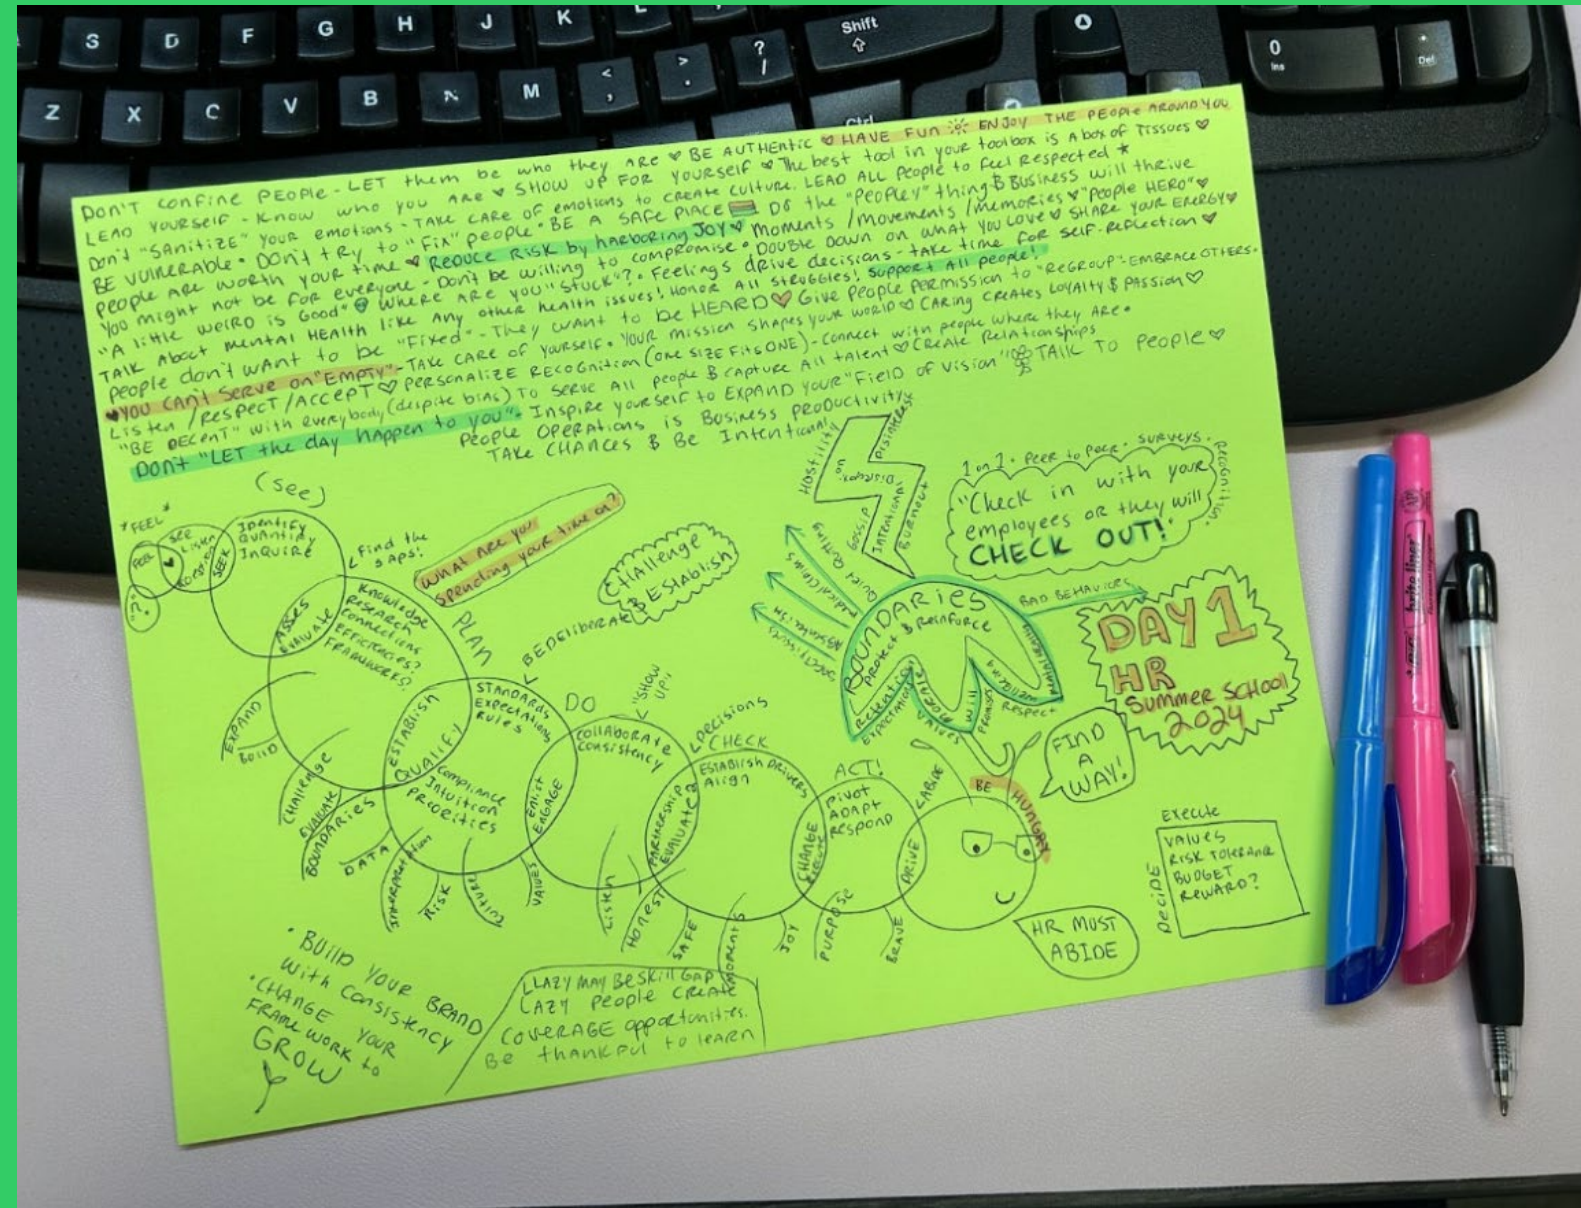 S D F G H J K L Shift
Z X C V B N M < , > . ? /
Ctrl
0 Ins
. Del
DON'T CONFINE PEOPLE - LET them be who they ARE ♥ BE AUTHENTIC ♥ HAVE FUN ☼ ENJOY THE PEOPLE AROUND YOU
LEAD YOURSELF - KNOW who you ARE ♥ SHOW UP FOR YOURSELF ♥ The best tool in your toolbox is A box of Tissues ♡
Don't "SANITIZE" YOUR emotions - TAKE CARE of emotions to CREATE CULTURE. LEAD ALL People to Feel Respected ★
BE VULNERABLE • DON'T TRY to "FIX" people • BE A SAFE PLACE DO the "PEOPLEY" thing & BUSINESS will thrive
people ARE worth your time ♥ REDUCE RISK by HARBORING JOY ♥ MOMENTS / movements / MEMORIES ♥ "People HERO" ♥
You might not be for everyone - Don't be willing to compromise • DOUBLE DOWN on what YOU LOVE ♥ SHARE YOUR ENERGY ♥
"A little WEIRD is GOOD" WHERE ARE you "STUCK"? • Feelings drive decisions - take time for self-reflection ♡
TALK ABOUT MENTAL HEALTH like ANY other health issues! HONOR All STRUGGLES! Support All people!
people don't want to be "Fixed" - They WANT to be HEARD ♡ Give People PERMISSION to "REGROUP" - EMBRACE OTHERS.
♥ YOU CAN'T SERVE ON "EMPTY" - TAKE CARE of YOURSELF • YOUR mission SHAPES your WORLD ♡ CARING CREATES LOYALTY & PASSION ♡
Listen / RESPECT / ACCEPT ♡ PERSONALIZE RECOGNITION (ONE SIZE Fits ONE) - Connect with people where they ARE •
"BE DECENT" with everybody (despite bias) TO SERVE All people & CAPTURE All talent ♡ Create Relationships
DON'T "LET the day happen to you". Inspire yourself to EXPAND YOUR "Field OF VISION" TALK TO People ♡
People OPERATIONS is BUSINESS PRODUCTIVITY
TAKE CHANCES & Be Intentional
HOSTILITY
DISINTEREST
GOSSIP
INTENTIONAL
BURNOUT
1 on 1 • Peer to Peer • SURVEYS •
Recognition
"Check in with your
employees or they will
CHECK OUT!"
(SEE)
*FEEL*
FEEL
SEE
Listen
RESPOND
"?"
SEEK
Identify
QUANTIFY
INQUIRE
Find the
gaps!
What ARE you
spending your time on?
CHALLENGE
& ESTABLISH
BE Deliberate
PLAN
ASSES
EVALUATE
Knowledge
RESEARCH
Connections
EFFICIENCIES?
FRAMEWORKS?
EXPAND
BUILD
CHALLENGE
EVALUATE
BOUNDARIES
DATA
ESTABLISH
QUALIFY
STANDARDS
Expectations
Rules
Compliance
Intuition
PRIORITIES
INTERPRETATION
RISK
CULTURE
VALUES
DO
"SHOW
UP"
Collaborate
Consistency
ENLIST
ENGAGE
Listen
HONEST
SAFE
MOMENTS
Decisions
CHECK
ESTABLISH DRIVERS
Align
PARTNERSHIP
EVALUATE
ACT!
PIVOT
ADAPT
RESPOND
CHANGE
EXECUTE
JOY
PURPOSE
BRAVE
DRIVE
ABIDE
BE HUNGRY
FIND
A
WAY!
HR MUST
ABIDE
Quiet Quitting
Medical Claims
Absenteeism
SAFETY ISSUES
BOUNDARIES
PROTECT & REINFORCE
Retention
EXPECTATIONS
VALUES
Will
PROMISES
Wellbeing
Respect
BAD BEHAVIORS
DAY 1
HR
Summer SCHOOL
2024
Execute
DECIDE
VALUES
RISK TOLERANCE
BUDGET
REWARD?
• BUILD YOUR BRAND
with CONSISTENCY
• CHANGE YOUR
FRAMEWORK to
GROW
LAZY MAY BE SKILL GAP
LAZY People CREATE
COVERAGE opportunities.
Be thankful to learn
brite liner